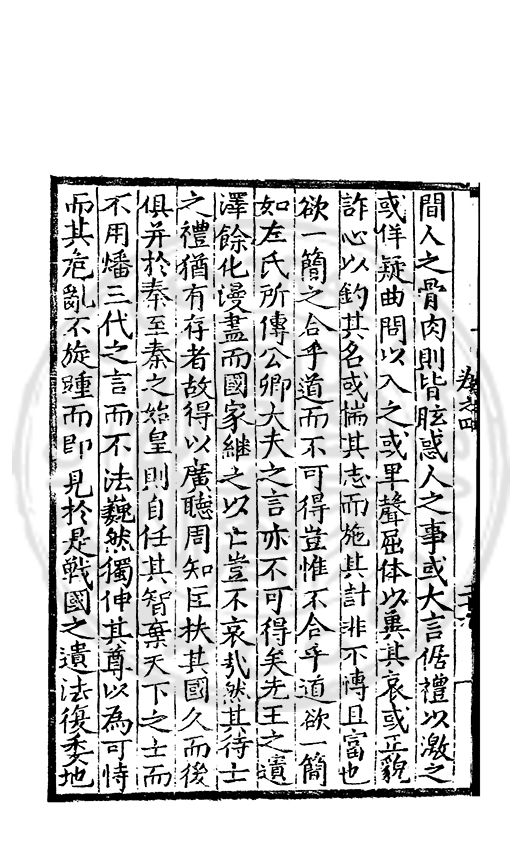 間人之骨肉則皆眩惑人之事或大言倨禮以激之
或佯疑曲問以入之或卑聲屈体以兾其哀或正貌
詐心以釣其名或惴其志而施其計非不慱且富也
欲一簡之合乎道而不可得豈惟不合乎道欲一簡
如左氏所傳公卿大夫之言亦不可得矣先王之遺
澤餘化漫盡而國家継之以亡豈不哀㢤然其待士
之禮猶有存者故得以廣聽周知匡扶其國久而後
俱并於秦至秦之始皇則自任其智棄天下之士而
不用燔三代之言而不法巍然獨伸其尊以為可恃
而其危亂不旋踵而即見於是戰國之遺法復委地
卷之四
二十六